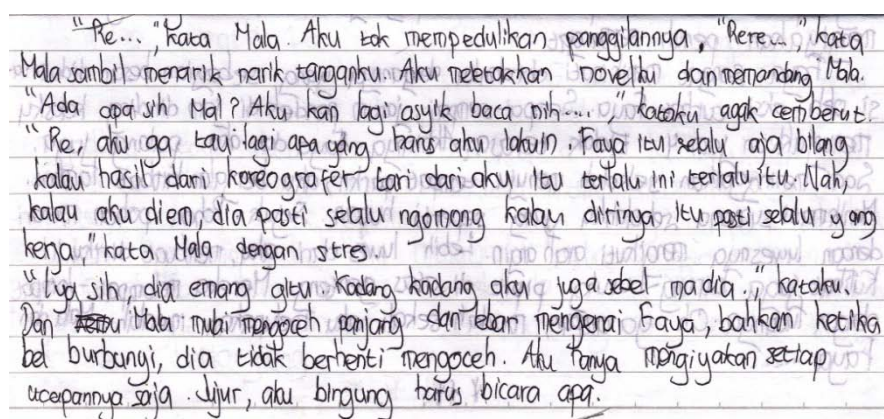 "Re...", kata Mala. Aku tak mempedulikan panggilannya, "Rere..." kata
Mala sambil menarik narik tanganku. Aku meletakkan novelku dan memandang Mala.
"Ada apa sih Mal? Aku kan lagi asyik baca nih....," kataku agak cemberut.
"Re, aku gg tau lagi apa yang harus aku lakuin. Faya itu selalu aja bilang
kalau hasil dari koreografer tari dari aku itu terlalu ini terlalu itu. Nah,
kalau aku diem, dia pasti selalu ngomong kalau dirinya itu pasti selalu yang
kerja" kata Mala dengan stres.
"Iya sih, dia emang gitu. Kadang kadang aku juga sebel ma dia.," kataku.
Dan Mala mulai mengoceh panjang dan lebar mengenai Faya, bahkan ketika
bel burbunyi, dia tidak berhenti mengoceh. Aku hanya mengiyakan setiap
ucapannya saja. Jujur, aku bingung harus bicara apa.